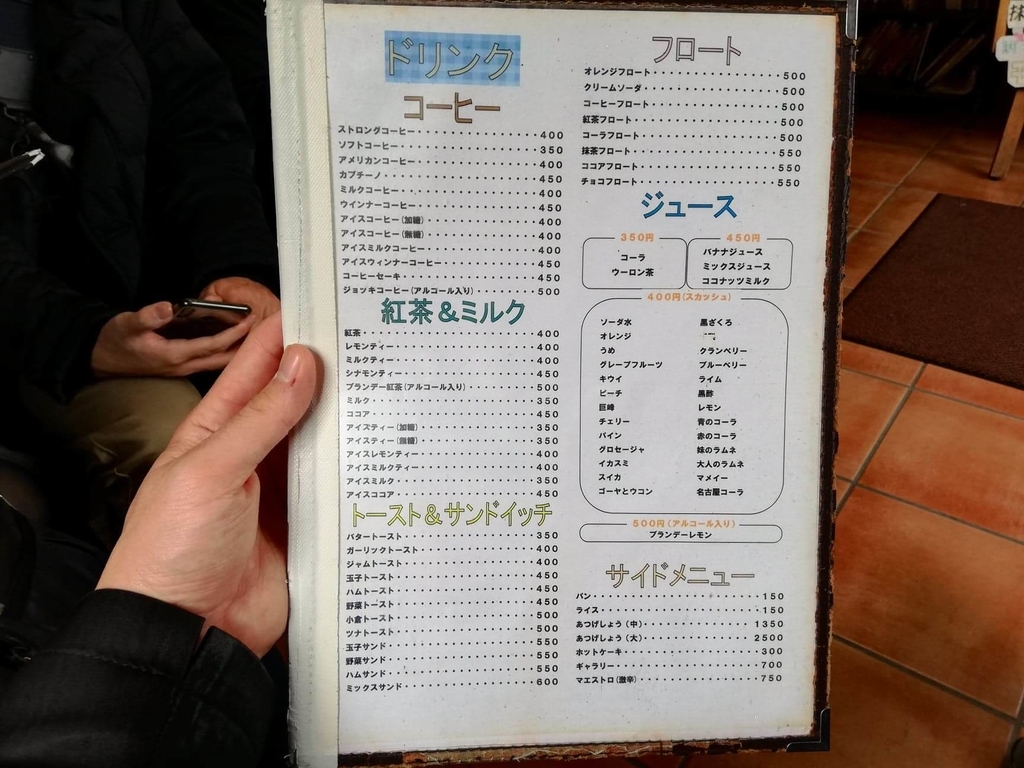 ドリンク
コーヒー
ストロングコーヒー・・・・・・・・・・・・400
ソフトコーヒー・・・・・・・・・・・・350
アメリカンコーヒー・・・・・・・・・・・・400
カプチーノ・・・・・・・・・・・・450
ミルクコーヒー・・・・・・・・・・・・400
ウインナーコーヒー・・・・・・・・・・・・450
アイスコーヒー(加糖)・・・・・・・・・・・・400
アイスコーヒー(無糖)・・・・・・・・・・・・400
アイスミルクコーヒー・・・・・・・・・・・・400
アイスウィンナーコーヒー・・・・・・・・・・・・450
コーヒーセーキ・・・・・・・・・・・・450
ジョッキコーヒー(アルコール入り)・・・・・・・・・500
紅茶&ミルク
紅茶・・・・・・・・・・・・400
レモンティー・・・・・・・・・・・・400
ミルクティー・・・・・・・・・・・・400
シナモンティー・・・・・・・・・・・・450
ブランデー紅茶(アルコール入り)・・・・・・・・・500
ミルク・・・・・・・・・・・・350
ココア・・・・・・・・・・・・450
アイスティー(加糖)・・・・・・・・・・・・350
アイスティー(無糖)・・・・・・・・・・・・350
アイスレモンティー・・・・・・・・・・・・400
アイスミルクティー・・・・・・・・・・・・400
アイスミルク・・・・・・・・・・・・350
アイスココア・・・・・・・・・・・・450
トースト&サンドイッチ
バタートースト・・・・・・・・・・・・350
ガーリックトースト・・・・・・・・・・・・400
ジャムトースト・・・・・・・・・・・・400
玉子トースト・・・・・・・・・・・・450
ハムトースト・・・・・・・・・・・・450
野菜トースト・・・・・・・・・・・・450
小倉トースト・・・・・・・・・・・・500
ツナトースト・・・・・・・・・・・・500
玉子サンド・・・・・・・・・・・・550
野菜サンド・・・・・・・・・・・・550
ハムサンド・・・・・・・・・・・・550
ミックスサンド・・・・・・・・・・・・600
フロート
オレンジフロート・・・・・・・・・・・・500
クリームソーダ・・・・・・・・・・・・500
コーヒーフロート・・・・・・・・・・・・500
紅茶フロート・・・・・・・・・・・・500
コーラフロート・・・・・・・・・・・・500
抹茶フロート・・・・・・・・・・・・550
ココアフロート・・・・・・・・・・・・550
チョコフロート・・・・・・・・・・・・550
ジュース
350円
コーラ
ウーロン茶
450円
バナナジュース
ミックスジュース
ココナッツミルク
400円(スカッシュ)
ソーダ水 黒ざくろ
オレンジ
うめ クランベリー
グレープフルーツ ブルーベリー
キウイ ライム
ピーチ 黒酢
巨峰 レモン
チェリー 青のコーラ
パイン 赤のコーラ
グロセージャ 妹のラムネ
イカスミ 大人のラムネ
スイカ マメイー
ゴーヤとウコン 名古屋コーラ
500円(アルコール入り)
ブランデーレモン
サイドメニュー
パン・・・・・・・・・・・・150
ライス・・・・・・・・・・・・150
あつげしょう(中)・・・・・・・・・・・・1350
あつげしょう(大)・・・・・・・・・・・・2500
ホットケーキ・・・・・・・・・・・・300
ギャラリー・・・・・・・・・・・・700
マエストロ(激辛)・・・・・・・・・・・・750
抹